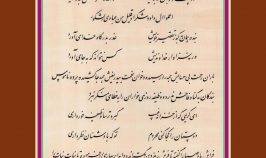 اعملوا آل داود شکرا و قلیل من عبادی الشکور
بنده همان به که ز تقصیر خویش عذر به درگاه خدای آورد
ورنه سزاوار خداوندیش کس نتواند که به جای آورد
باران رحمت بی حسابش همه را رسیده و خوان نعمت بی دریغش همه جا کشیده پرده ناموس
بندگان به گناه فاحش ندرد و وظیفه روزی خواران را بخطای منکر نبرد
ای کریمی که از خزانه غیب گبر و ترسا وظیفه خور داری
دوستان را کجا کنی محروم تو که با دشمنان نظر داری